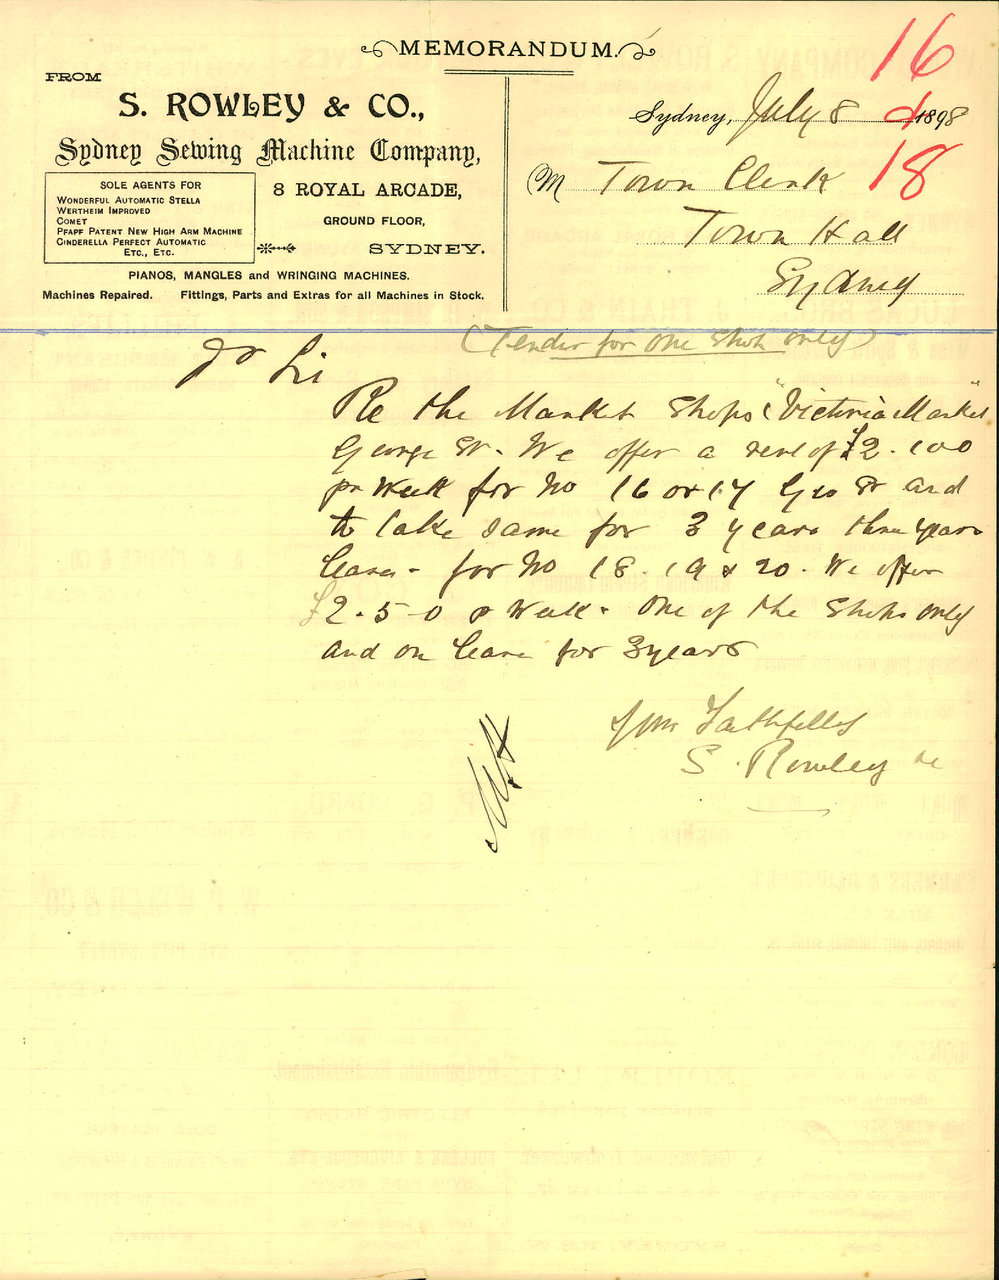 MEMORANDUM.
FROM
S. ROWLEY & CO.,
Sydney Sewing Machine Company,
SOLE AGENTS FOR
WONDERFUL AUTOMATIC STELLA
WERTHEIM IMPROVED
COMET
PFAFF PATENT NEW HIGH ARM MACHINE
CINDERELLA PERFECT AUTOMATIC
ETC., ETC.
8 ROYAL ARCADE,
GROUND FLOOR,
SYDNEY.
PIANOS, MANGLES and WRINGING MACHINES.
Machines Repaired. Fittings, Parts and Extras for all Machines in Stock.
16
&
18
Sydney, July 8 1898
M Town Clerk
Town Hall
Sydney
(Tender for one Shop only)
Sir
Re the Market Shops "Victoria Market"
George St. We offer a rent of £2.10.0
pr Week for No 16 or 17 Geo St and
to take same for 3 years three years
lease - for No 18. 19 & 20. We offer
£2-5-0 p Week. One of the Shops only
and on lease for 3 years
Yours Faithfully
S. Rowley